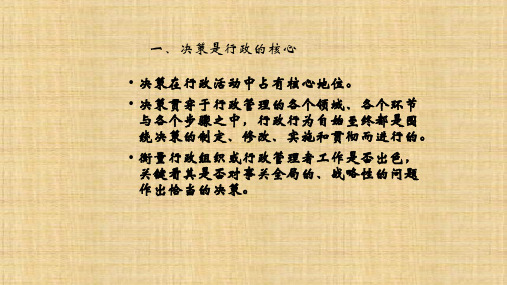 一、决策是行政的核心
• 决策在行政活动中占有核心地位。
• 决策贯穿于行政管理的各个领域、各个环节
与各个步骤之中，行政行为自始至终都是围
绕决策的制定、修改、实施和贯彻而进行的。
• 衡量行政组织或行政管理者工作是否出色，
关键看其是否对事关全局的、战略性的问题
作出恰当的决策。